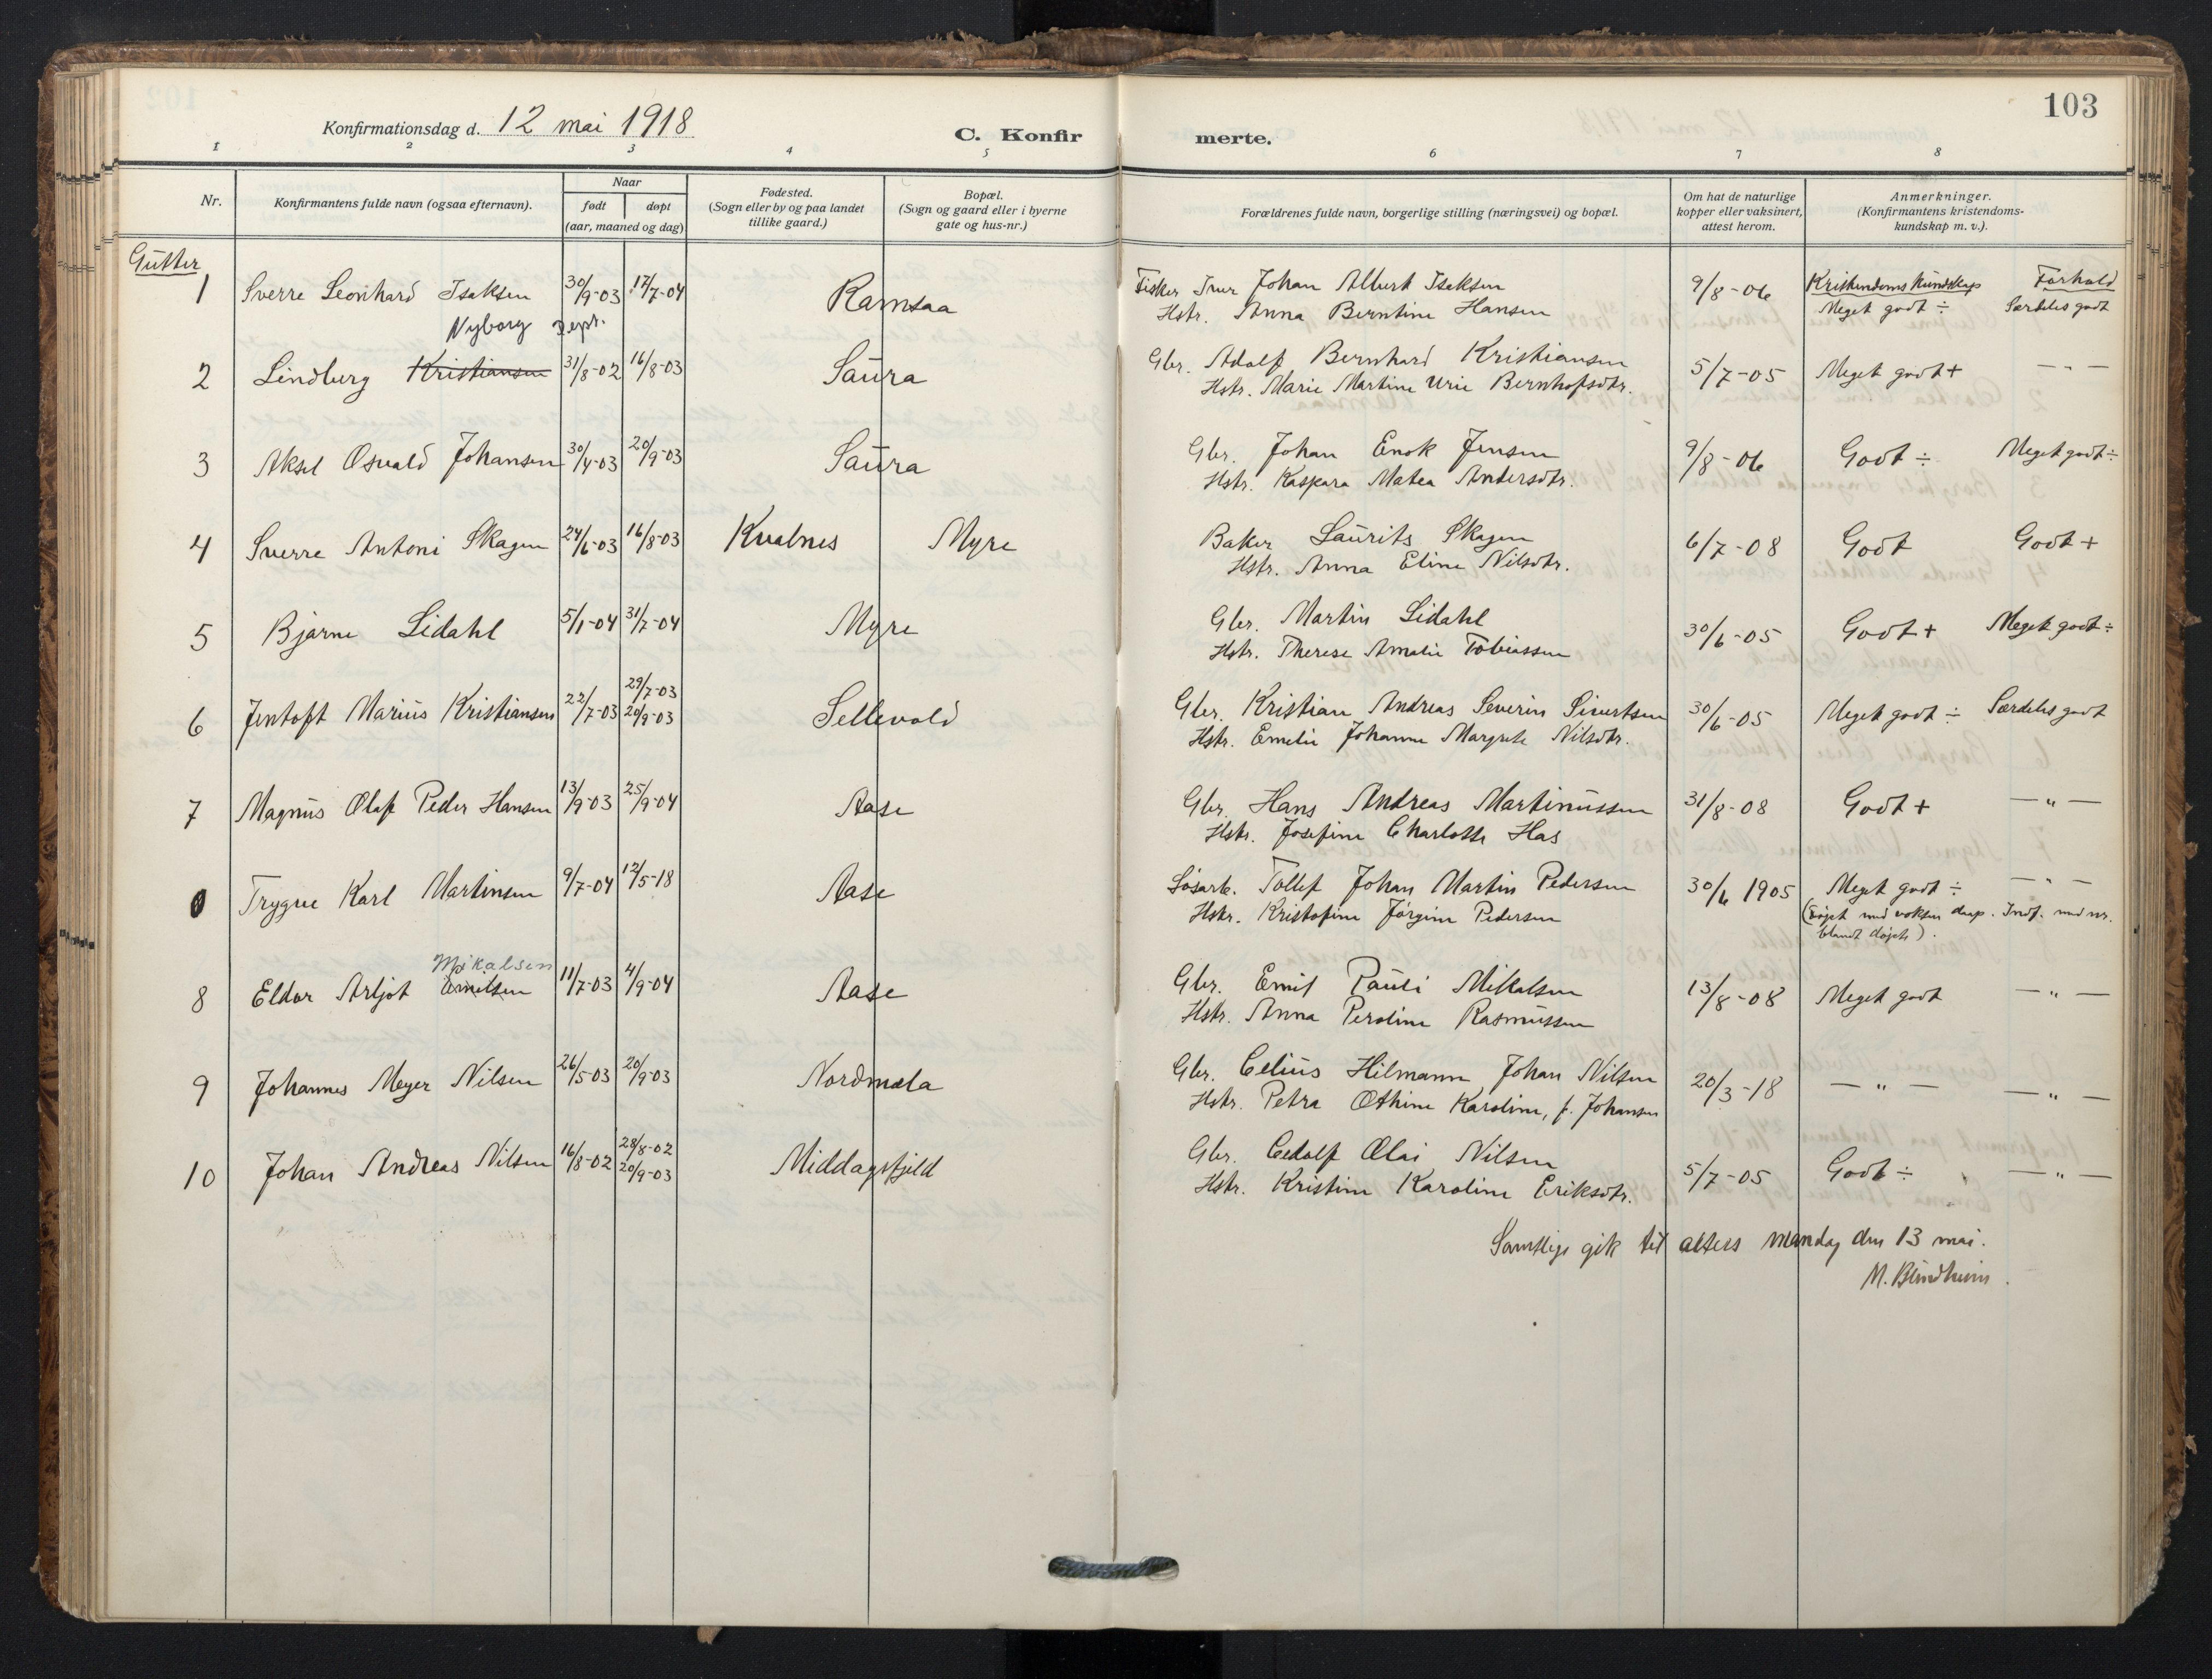 103
Konfirmationsdag d. 12 mai 1918
C. Konfirmerte.
1 2 3 4 5 6 7 8
Nr.
Konfirmantens fulde navn (ogsaa efternavn).
Naar
født døpt
(aar, maaned og dag)
Fødested.
(Sogn eller by og paa landet
tillike gaard.)
Bopæl.
(Sogn og gaard eller i byerne
gate og hus-nr.)
Forældrenes fulde navn, borgerlige stilling (næringsvei) og bopæl.
Om hat de naturlige
kopper eller vaksinert,
attest herom.
Anmerkninger.
(Konfirmantens kristendoms-
kundskap m. v.).
Gutter
Kristendomskundskap Forhold
1 Sverre Leonhard Isaksen 30/9-03 17/7-04 Ramsaa Fisker Iver Johan Albert Isaksen 9/8-06 Meget godt ÷ Særdeles godt
Hstr. Anna Berntine Hansen
Nyborg Dept.
2 Lindberg Kristiansen 31/8-02 16/8-03 Saura Gbr. Adolf Bernhard Kristiansen 5/7-05 Meget godt + — " —
Hstr. Marie Martine Urie Bernhofsdtr.
3 Aksel Osvald Johansen 30/4-03 20/9-03 Saura Gbr. Johan Enok Jensen 9/8-06 Godt ÷ Meget godt ÷
Hstr. Kaspara Matea Andersdtr.
4 Sverre Antoni Skagen 24/6-03 16/8-03 Kvalnes Myre Baker Laurits Skagen 6/7-08 Godt Godt +
Hstr. Anna Eline Nilsdtr.
5 Bjarne Lidahl 5/1-04 31/7-04 Myre Gbr. Martin Lidahl 30/6-05 Godt + Meget godt ÷
Hstr. Therese Amalie Tobiassen
29/7-03
6 Jentoft Marius Kristiansen 22/7-03 20/9-03 Sellevold Gbr. Kristian Andreas Severin Sivertsen 30/6-05 Meget godt ÷ Særdeles godt
Hstr. Emelie Johanne Margrete Nilsdtr.
7 Magnus Olaf Peder Hansen 13/9-03 25/9-04 Aase Gbr. Hans Andreas Martinussen 31/8-08 Godt + — " —
Hstr. Josefine Charlotte Has
0 Trygve Karl Martinsen 9/7-04 12/5-18 Aase Løsarb. Tollef Johan Martin Pedersen 30/6 1905 Meget godt ÷ — " —
Hstr. Kristofine Jørgine Pedersen (Døpt med voksen daap. Indf. med nr.
blandt døpte).
Mikalsen
8 Eldor Arljot Emilsen 11/7-03 4/9-04 Aase Gbr. Emil Pauli Mikalsen 13/8-08 Meget godt — " —
Hstr. Anna Peroline Rasmussen
9 Johannes Meyer Nilsen 26/5-03 20/9-03 Nordmela Gbr. Celius Hilmann Johan Nilsen 20/3-18 — " — — " —
Hstr. Petra Othine Karoline, f. Johansen
28/8-02
10 Johan Andreas Nilsen 16/8-02 20/9-03 Middagsfjeld Gbr. Cedolf Olai Nilsen 5/7-05 Godt ÷ — " —
Hstr. Kristine Karoline Eriksdtr.
Samtlige gik til alters mandag den 13 mai.
M. Blindheim.